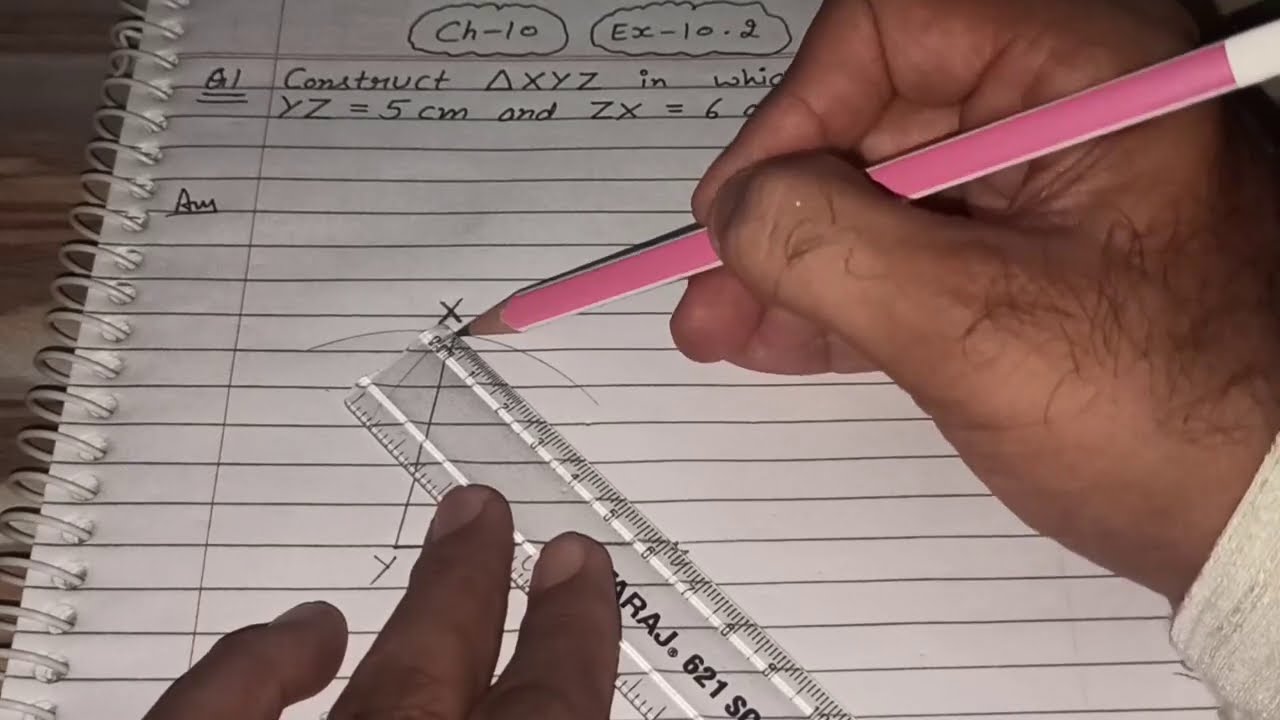 Ch-10 Ex-10.2
Q1 Construct △XYZ in
YZ = 5 cm and ZX = 6
Ans
X
Y
ARAJ® 621